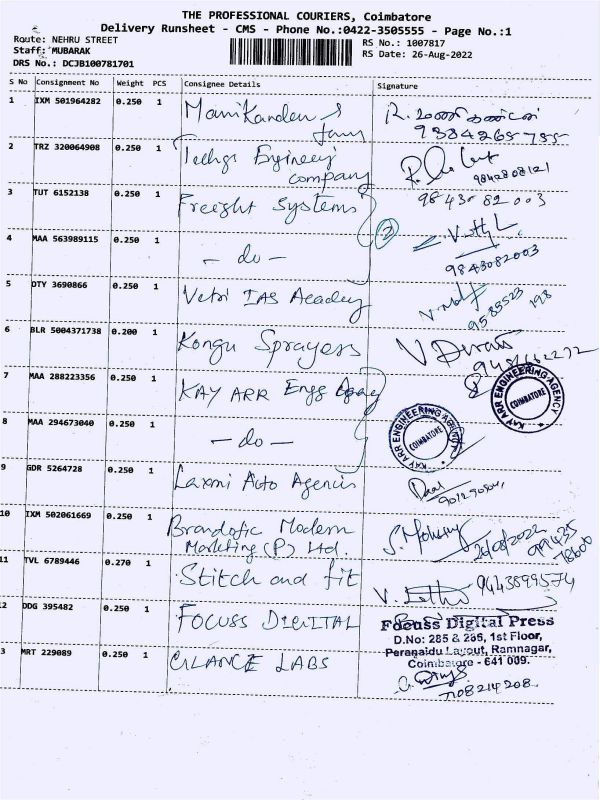 THE PROFESSIONAL COURIERS, Coimbatore
Delivery Runsheet - CMS - Phone No.:0422-3505555 - Page No.:1
Route: NEHRU STREET
Staff: MUBARAK
DRS No.: DCJB100781701
RS No.: 1007817
RS Date: 26-Aug-2022
S No Consignment No Weight PCS Consignee Details Signature
1 IXM 501964282 0.250 1 Manikanden S
R. மணிகண்டன்
2 TRZ 320064908 0.250 1 Engineering
company
9842808121
3 TUT 6152138 0.250 1 Freight Systems 9843082003
2
4 MAA 563989115 0.250 1 - do -
9843082003
5 DTY 3690866 0.250 1 Vetri IAS Academy
6 BLR 5004371738 0.200 1 Kongu Sprayers
7 MAA 288223356 0.250 1 KAY ARR Engg Agency
KAY ARR ENGINEERING AGENCY
COIMBATORE
8 MAA 294673040 0.250 1 - do -
KAY ARR ENGINEERING AGENCY
COIMBATORE
9 GDR 5264728 0.250 1 Laxmi Auto Agencis
10 IXM 502061669 0.250 1 Modern
Marketing (P) Ltd.
26/08/2022
11 TVL 6789446 0.270 1 Stitch and fit
9443899574
2 DDG 395482 0.250 1 FOCUSS DIGITAL
Focuss Digital Press
D.No: 285 & 286, 1st Floor,
Peranaidu Layout, Ramnagar,
Coimbatore - 641 009.
3 MRT 229089 0.250 1 LABS
7708214208